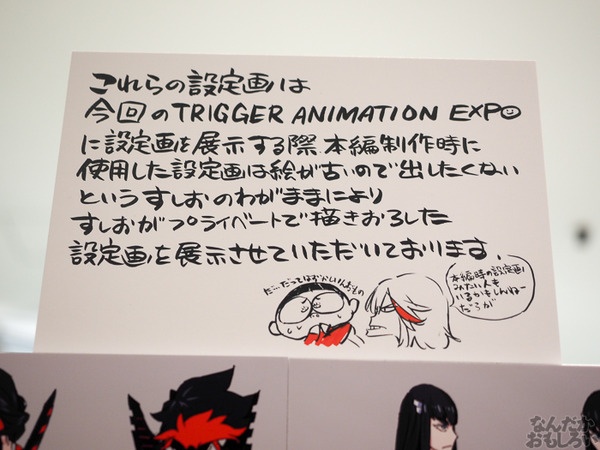 これらの設定画は
今回のTRIGGER ANIMATION EXPO
に設定画を展示する際本編制作時に
使用した設定画は絵が古いので出したくない
というすしおのわがままにより
すしおがプライベートで描きおろした
設定画を展示させていただいております。
だ…だってはずかしいんだもの
本編時の設定画
みたい人も
いるかもしんねー
だろが
なんだか
おもしろい